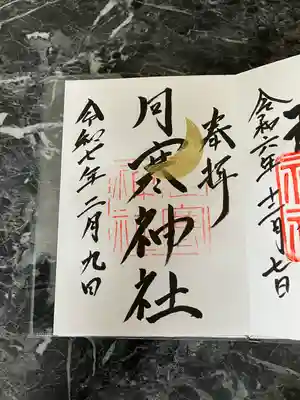 令和六年十二月七日
奉拝
月寒神社
令和七年二月九日